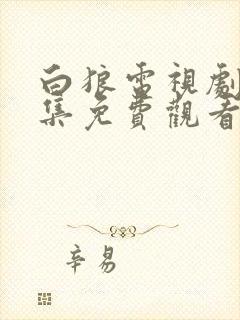 白狼電視劇
集免費觀看
辛易